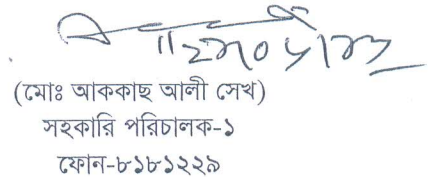 (মোঃ আককাছ আলী সেখ)
সহকারি পরিচালক-১
ফোন-৮১৮১২২৯